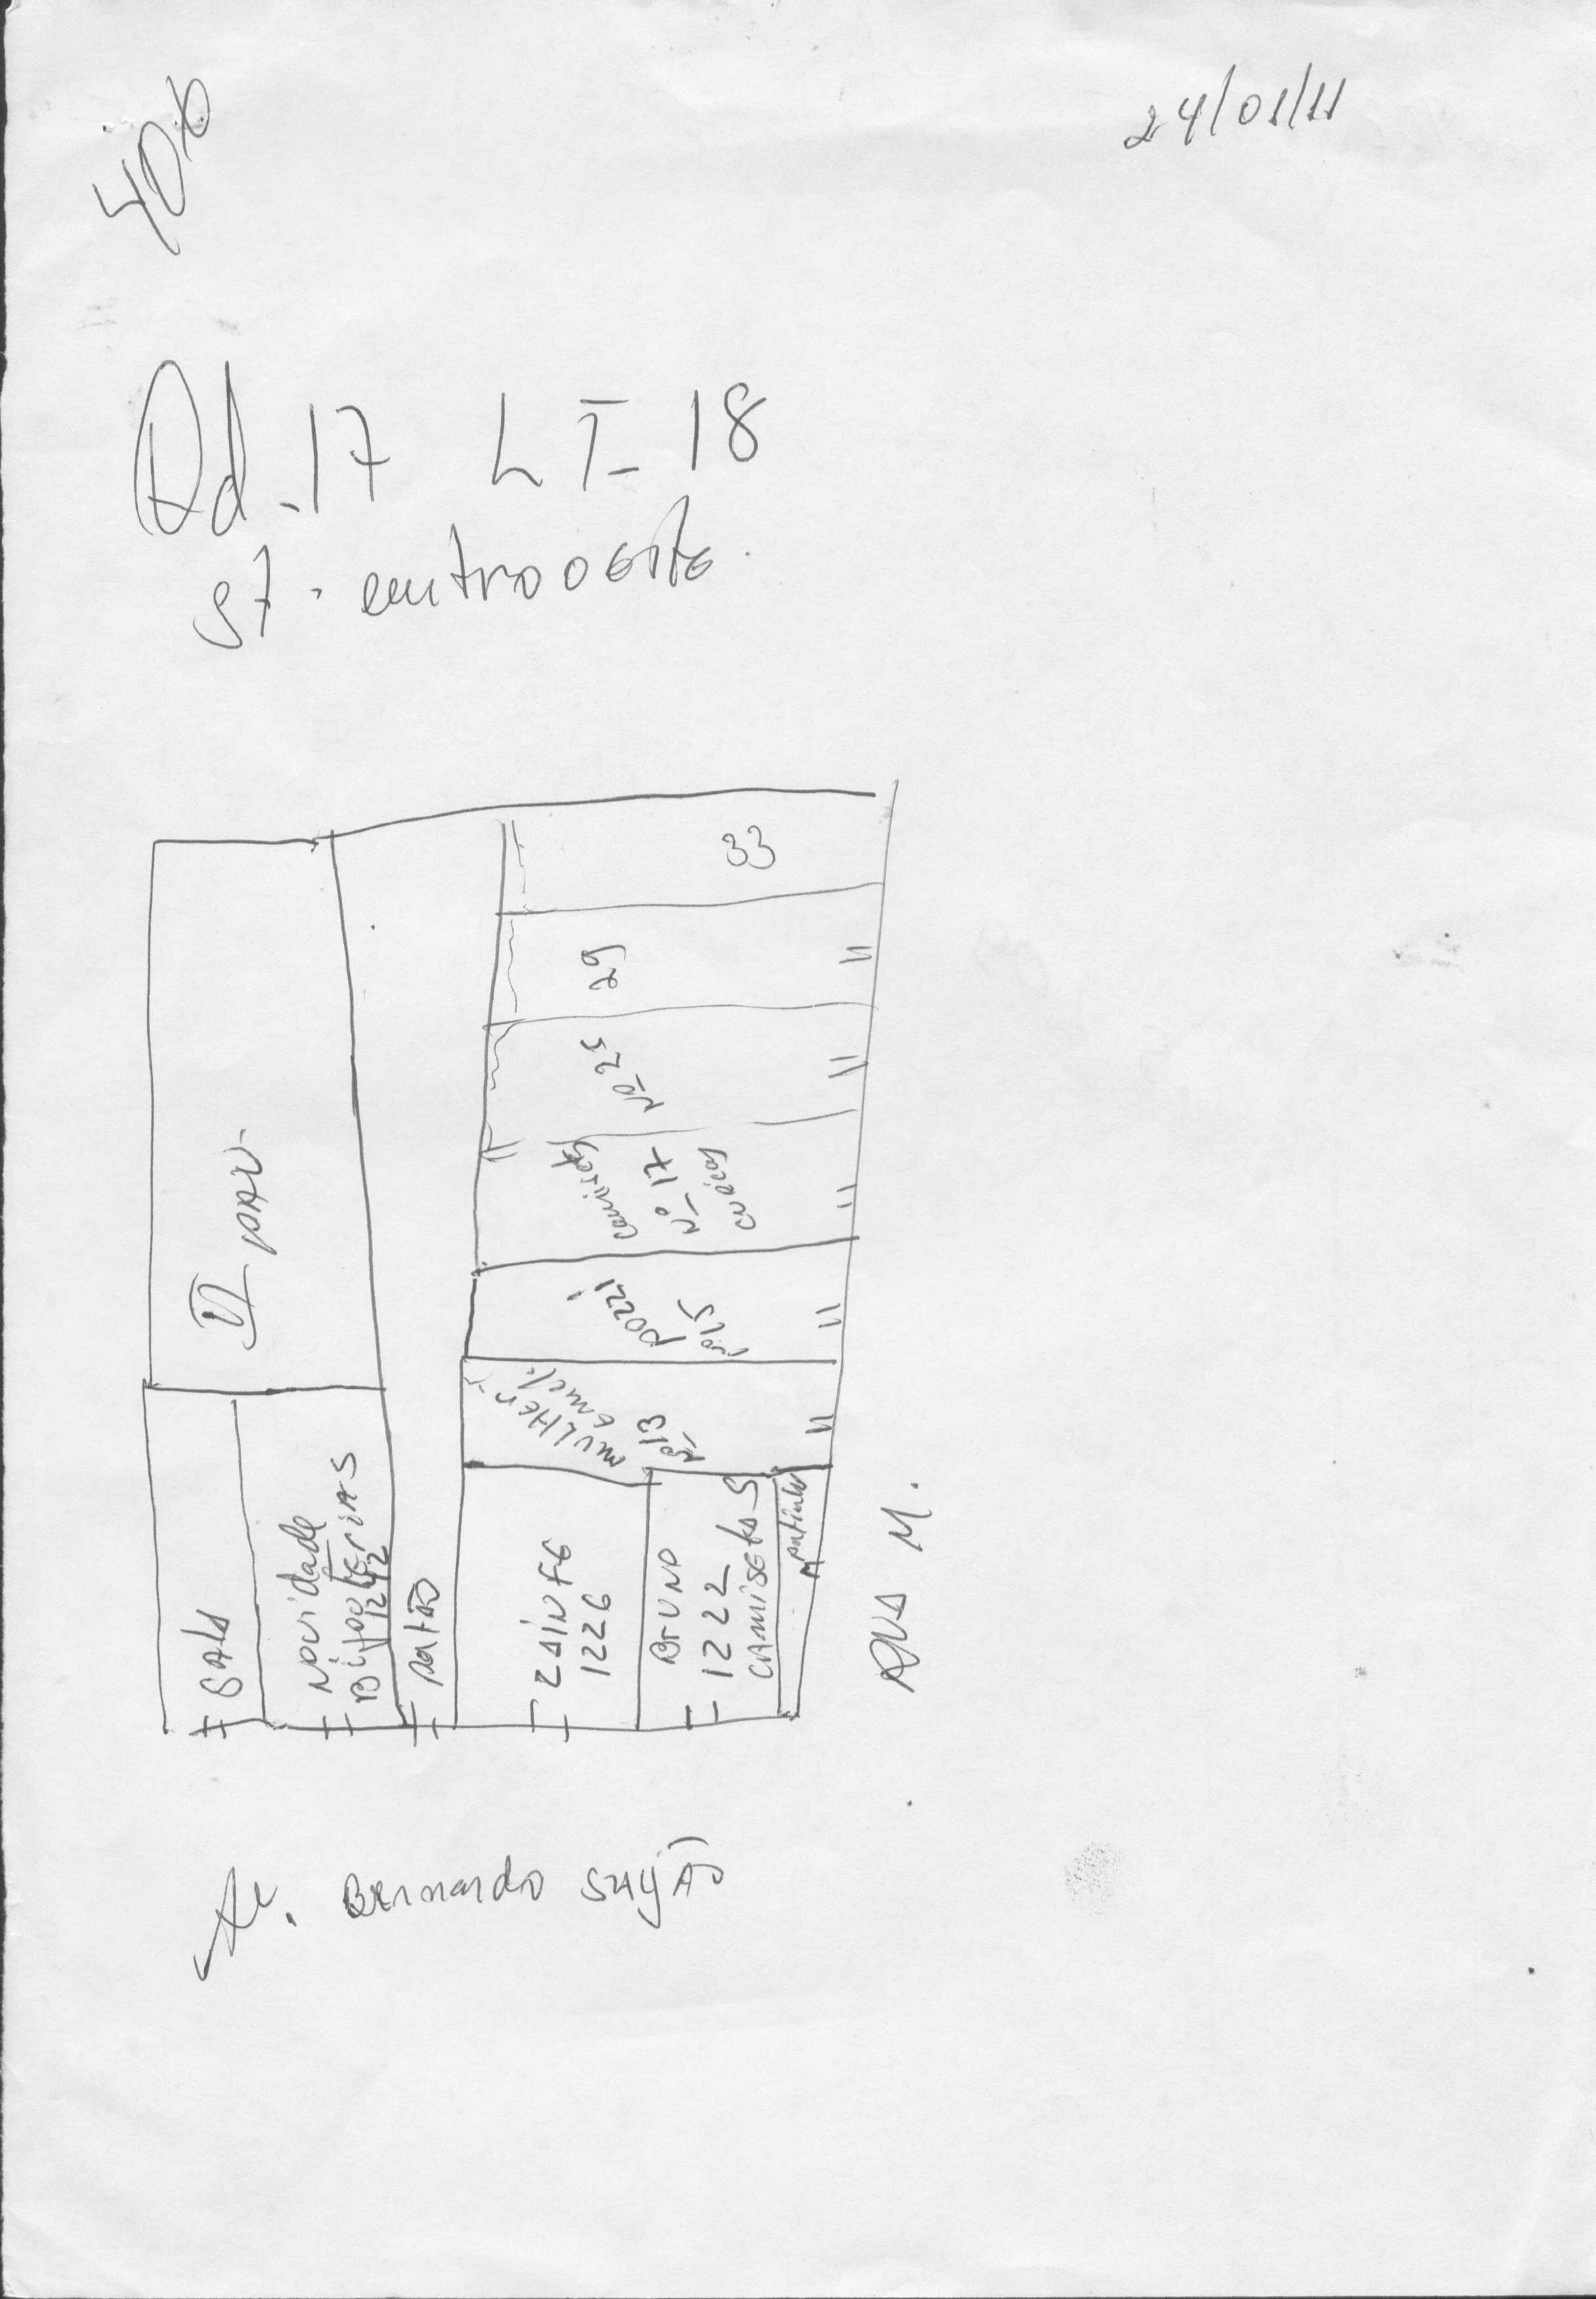 406
24/01/11
Qd. 17 LT- 18
ST. centro oeste.
33
29
Nº 25
camisetas
Nº 17
cuecas
pozzi
nº 15
MULHER
nº 13
II PAV.
SALA
Novidade
Bijouterias
1242
portão
ZAINFE
1226
Bruno
1222
CAMISETAS
RUA M.
Av. Bernardo SAYÃO